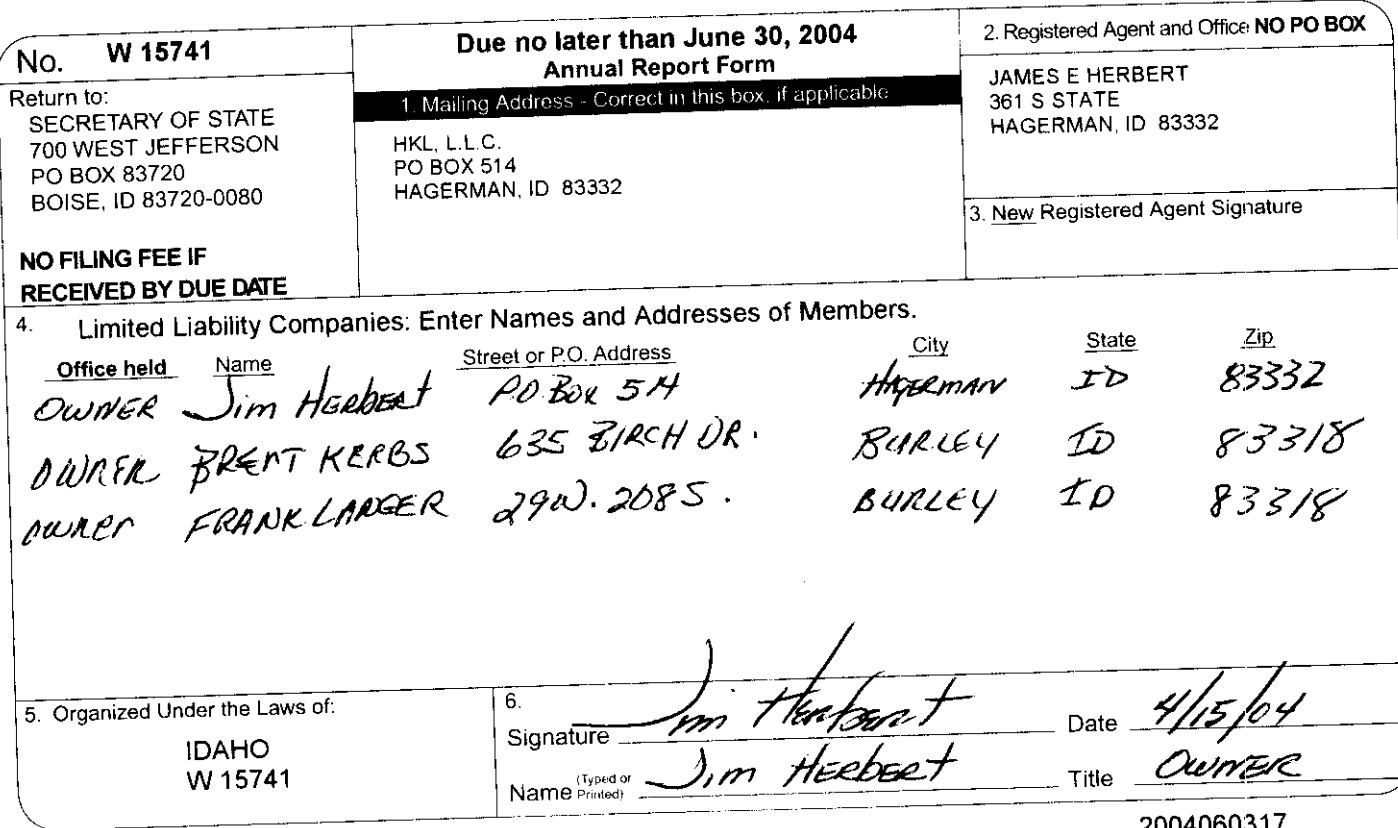 No. W 15741
Return to:
SECRETARY OF STATE
700 WEST JEFFERSON
PO BOX 83720
BOISE, ID 83720-0080
NO FILING FEE IF
RECEIVED BY DUE DATE
Due no later than June 30, 2004
Annual Report Form
1. Mailing Address - Correct in this box, if applicable
HKL, L.L.C.
PO BOX 514
HAGERMAN, ID 83332
2. Registered Agent and Office NO PO BOX
JAMES E HERBERT
361 S STATE
HAGERMAN, ID 83332
3. New Registered Agent Signature
4. Limited Liability Companies: Enter Names and Addresses of Members.
Office held Name Street or P.O. Address City State Zip
OWNER Jim HERBERT PO Box 514 HAGERMAN ID 83332
OWNER BRENT KERBS 635 BIRCH DR. BURLEY ID 83318
owner FRANK LANGER 29W. 208S. BURLEY ID 83318
5. Organized Under the Laws of:
IDAHO
W 15741
6.
Signature Jim Herbert Date 4/15/04
Name (Typed or Printed) Jim HERBERT Title OWNER
2004060317